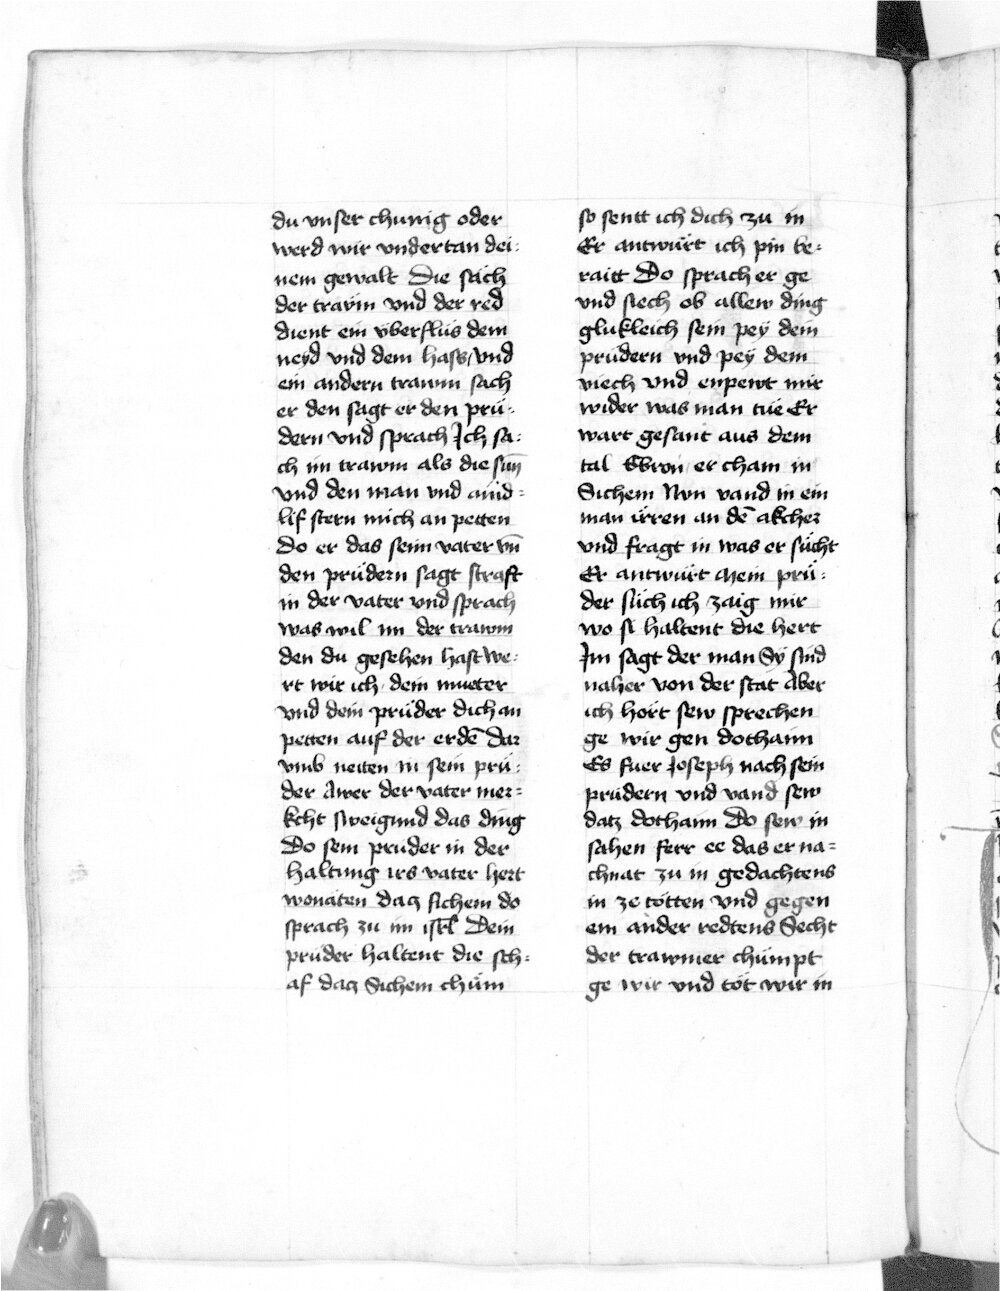 du vnser chunig oder
werd wir vndertan dei-
nem gewalt Die sach
der trawm vnd der red
dient ein v̈berflüs dem
neyd vnd dem hass vnd
ein andern trawm sach
er den sagt er den prü-
dern vnd sprach Ich sa-
ch im trawm als die sun̄
vnd den man vnd aind-
lif stern mich an petten
Do er das seim vater vn̄
den prüdern sagt straft
in der vater vnd sprach
was wil im der trawm
den du gesehen hast We-
rt wir ich dein mueter
vnd dein prüder dich an
petten auf der erdē Dar
vmb neiten in sein prü-
der Awer der vater mer-
kcht sweigund das ding
Do sein prüder in der
haltung irs vater hert
wonäten dacz sichem do
sprach zu im isrl̄ Dein
prüder haltent die sch-
af dacz Sichem chüm
so sentt ich dich zu in
Er antwürt ich pin be-
raitt Do sprach er ge
vnd siech ob allew ding
glukleich sein pey dein
prüdern vnd pey dem
viech vnd enpewt mir
wider was man tüe Er
wart gesant aus dem
tal Ebron er cham in
Sichem Nvn vand in ein
man irren an dē akcher
vnd fragt in was er sücht
Er antwürt Mein prü-
der süch ich zaig mir
wo si haltent die hert
Im sagt der man Sy sind
naher von der stat Aber
ich hört sew sprechen
ge wir gen dothaim
Es fuer Joseph nach sein
prüdern vnd vand sew
datz dothaim Do sew in
sahen ferr ee das er na-
chnat zu in gedachtens
in ze tötten vnd gegen
ein ander redtens Secht
der trawmer chümpt
ge wir vnd töt wir in